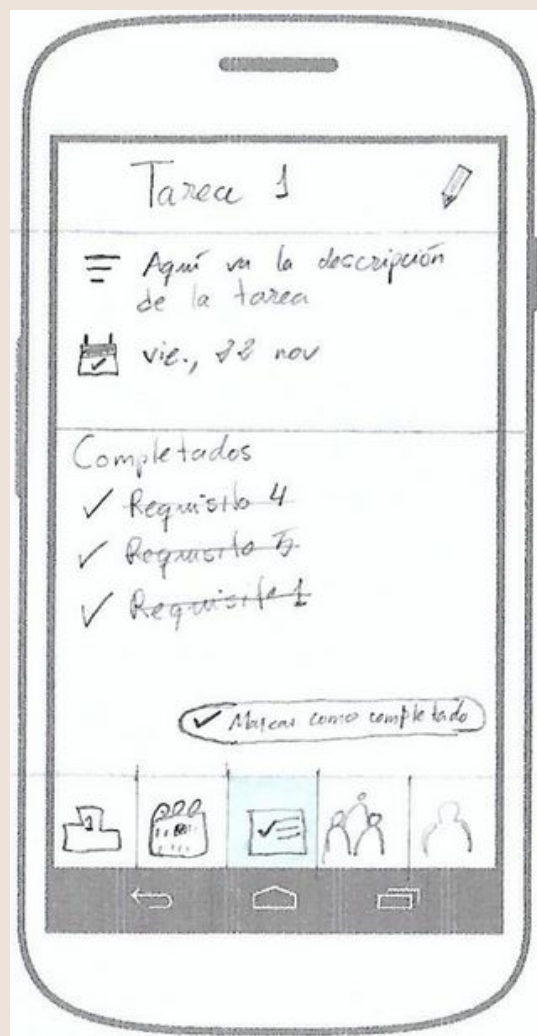 Tarea 1
Aquí va la descripción
de la tarea
vie., 22 nov
Completados
Requisito 4
Requisito 5
Requisito 1
Marcar como completado
1